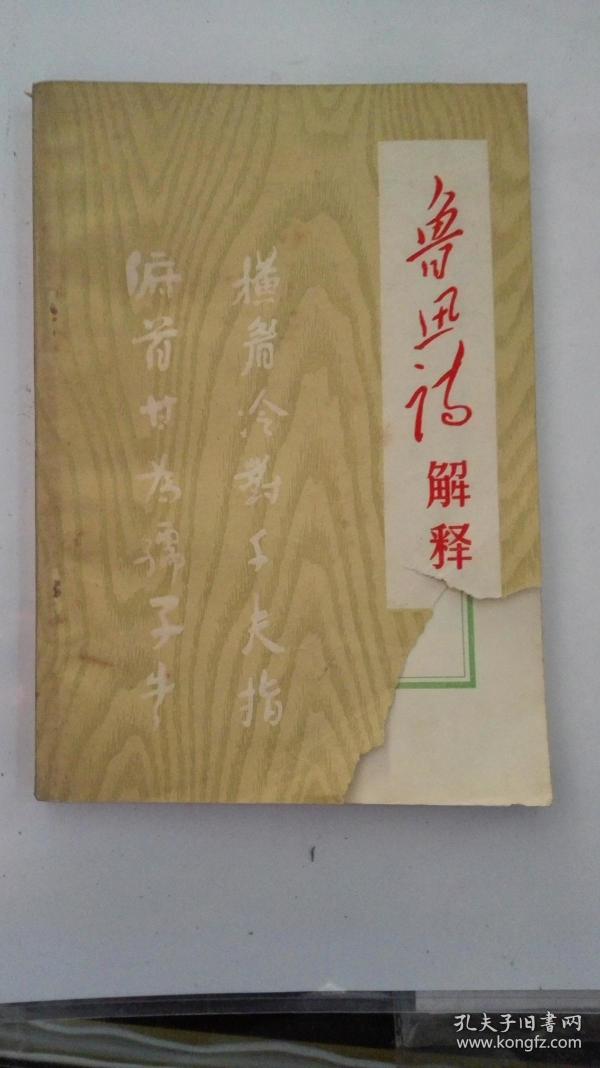 鲁迅诗
解释
橫眉冷對千夫指
俯首甘為孺子牛
孔夫子旧书网
www.kongfz.com